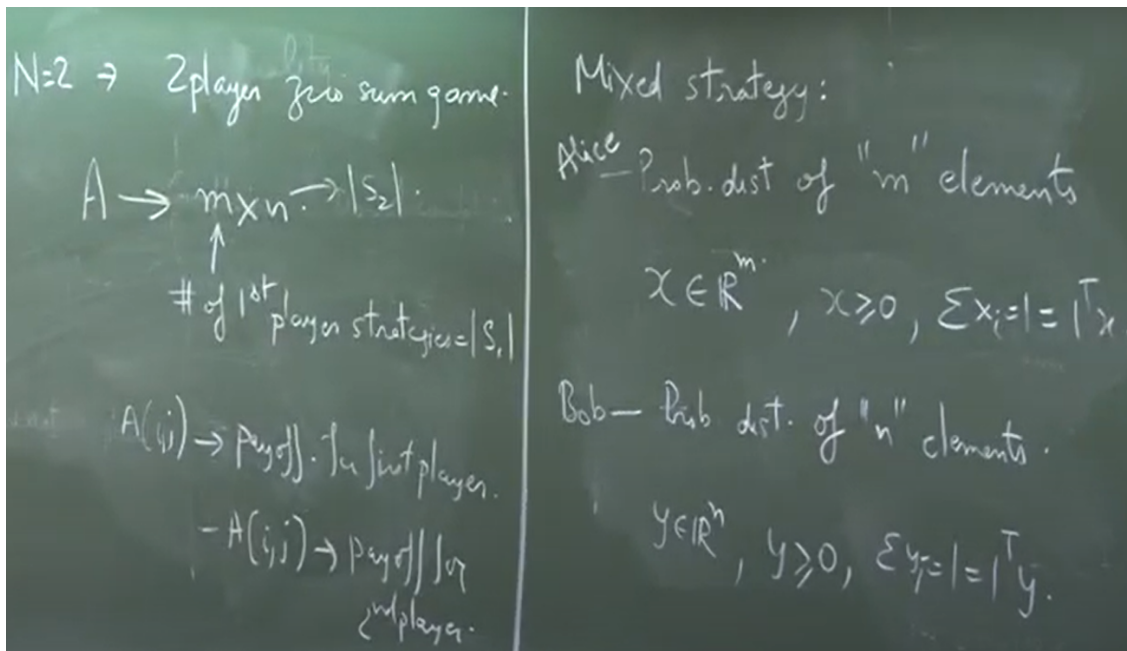 N=2 → 2 player zero sum game.
A → m x n. → |S₂|.
↑
# of 1st player strategies = |S₁|
A(i,j) → payoff. for first player.
- A(i,j) → payoff for
2nd player.
Mixed strategy:
Alice - Prob. dist of "m" elements
x ∈ ℝᵐ, x ≥ 0, Σxᵢ = 1 = 1ᵀx
Bob - Prob dist. of "n" elements.
y ∈ ℝⁿ, y ≥ 0, Σyⱼ = 1 = 1ᵀy.